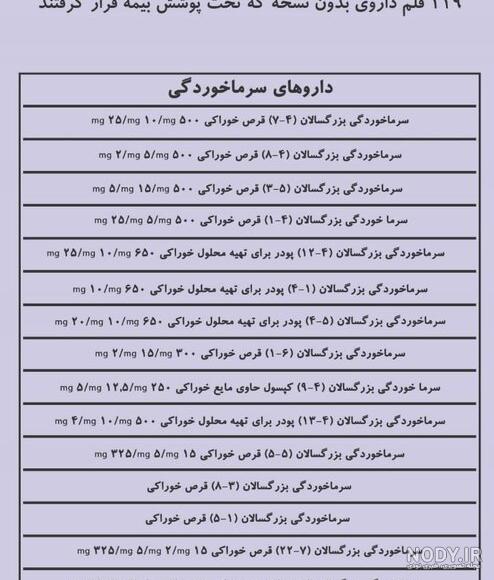 ۱۱۹ قلم داروی بدون نسخه که تحت پوشش بیمه قرار گرفتند
داروهای سرماخوردگی
سرماخوردگی بزرگسالان (۴-۷) قرص خوراکی ۵۰۰ mg ۲۵/mg ۱۰/mg
سرماخوردگی بزرگسالان (۴-۸) قرص خوراکی ۵۰۰ mg ۲/mg ۵/mg
سرماخوردگی بزرگسالان (۵-۳) قرص خوراکی ۵۰۰ mg ۵/mg ۱۵/mg
سرما خوردگی بزرگسالان (۴-۱) قرص خوراکی ۵۰۰ mg ۲۵/mg ۵/mg
سرماخوردگی بزرگسالان (۴-۱۲) پودر برای تهیه محلول خوراکی ۶۵۰ mg ۲۵/mg ۱۰/mg
سرماخوردگی بزرگسالان (۱-۴) پودر برای تهیه محلول خوراکی ۶۵۰ mg ۱۰/mg
سرماخوردگی بزرگسالان (۵-۴) پودر برای تهیه محلول خوراکی ۶۵۰ mg ۲۰/mg ۱۰/mg
سرماخوردگی بزرگسالان (۶-۱) قرص خوراکی ۳۰۰ mg ۲/mg ۱۵/mg
سرما خوردگی بزرگسالان (۴-۹) کپسول حاوی مایع خوراکی ۲۵۰ mg ۵/mg ۱۲,۵/mg
سرماخوردگی بزرگسالان (۴-۱۳) پودر برای تهیه محلول خوراکی ۵۰۰ mg ۴/mg ۱۰/mg
سرماخوردگی بزرگسالان (۵-۵) قرص خوراکی ۱۵ mg ۳۲۵/mg ۵/mg
سرماخوردگی بزرگسالان (۳-۸) قرص خوراکی
سرماخوردگی بزرگسالان (۱-۵) قرص خوراکی
سرماخوردگی بزرگسالان (۷-۲۲) قرص خوراکی ۱۵ mg ۳۲۵/mg ۵/mg ۲/mg
NODY.IR